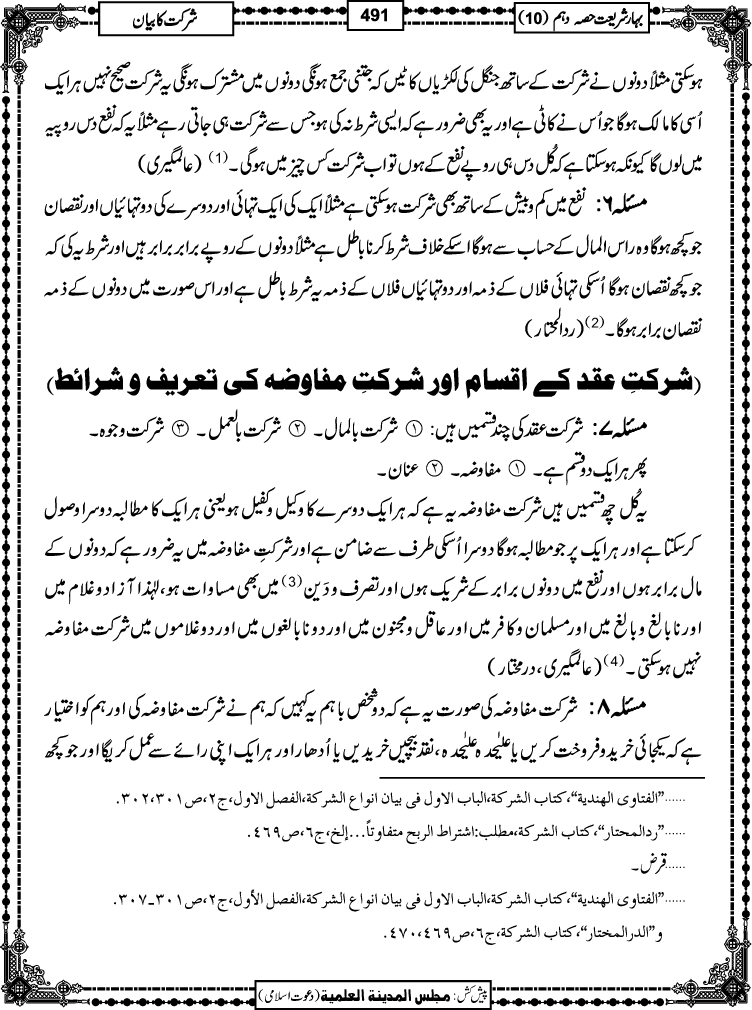 بہارِ شریعت حصہ دہم (10)
491
شرکت کا بیان
ہوسکتی مثلاً دونوں نے شرکت کے ساتھ جنگل کی لکڑیاں کاٹیں کہ جتنی جمع ہونگی دونوں میں مشترک ہونگی یہ شرکت صحیح نہیں ہر ایک
اُسی کا مالک ہوگا جو اُس نے کاٹی ہے اور یہ بھی ضرور ہے کہ ایسی شرط نہ کی ہو جس سے شرکت ہی جاتی رہے مثلاً یہ کہ نفع دس روپیہ
میں لوں گا کیونکہ ہوسکتا ہے کہ کُل دس ہی روپے نفع کے ہوں تو اب شرکت کس چیز میں ہوگی۔ (1) (عالمگیری)
مسئلہ ۶: نفع میں کم و بیش کے ساتھ بھی شرکت ہوسکتی ہے مثلاً ایک کی ایک تہائی اور دوسرے کی دو تہائیاں اور نقصان
جو کچھ ہوگا وہ راس المال کے حساب سے ہوگا اسکے خلاف شرط کرنا باطل ہے مثلاً دونوں کے روپے برابر برابر ہیں اور شرط یہ کی کہ
جو کچھ نقصان ہوگا اُسکی تہائی فلاں کے ذمہ اور دو تہائیاں فلاں کے ذمہ یہ شرط باطل ہے اور اس صورت میں دونوں کے ذمہ
نقصان برابر ہوگا۔ (2) (ردالمحتار)
(شرکتِ عقد کے اقسام اور شرکتِ مفاوضہ کی تعریف و شرائط)
مسئلہ ۷: شرکت عقد کی چند قسمیں ہیں: ① شرکت بالمال۔ ② شرکت بالعمل۔ ③ شرکت وجوہ۔
پھر ہر ایک دو قسم ہے۔ ① مفاوضہ۔ ② عنان۔
یہ کُل چھ قسمیں ہیں شرکت مفاوضہ یہ ہے کہ ہر ایک دوسرے کا وکیل و کفیل ہو یعنی ہر ایک کا مطالبہ دوسرا وصول
کرسکتا ہے اور ہر ایک پر جو مطالبہ ہوگا دوسرا اُسکی طرف سے ضامن ہے اور شرکتِ مفاوضہ میں یہ ضرور ہے کہ دونوں کے
مال برابر ہوں اور نفع میں دونوں برابر کے شریک ہوں اور تصرف و دَین (3) میں بھی مساوات ہو، لہٰذا آزاد و غلام میں
اور نابالغ و بالغ میں اور مسلمان و کافر میں اور عاقل و مجنون میں اور دو نابالغوں میں اور دو غلاموں میں شرکت مفاوضہ
نہیں ہوسکتی۔ (4) (عالمگیری، درمختار)
مسئلہ ۸: شرکت مفاوضہ کی صورت یہ ہے کہ دو شخص باہم یہ کہیں کہ ہم نے شرکت مفاوضہ کی اور ہم کو اختیار
ہے کہ یکجائی خرید و فروخت کریں یا علیٰحدہ علیٰحدہ، نقد بیچیں خریدیں یا اُدھار اور ہر ایک اپنی رائے سے عمل کریگا اور جو کچھ
......”الفتاوی الهندیة“، کتاب الشرکة، الباب الاول فی بیان انواع الشرکة، الفصل الاول، ج۲، ص۳۰۱،۳۰۲.
......”ردالمحتار“، کتاب الشرکة، مطلب: اشتراط الربح متفاوتاً... إلخ، ج۶، ص۴۶۹.
......قرض۔
......”الفتاوی الهندیة“، کتاب الشرکة، الباب الاول فی بیان انواع الشرکة، الفصل الأول، ج۲، ص۳۰۱-۳۰۷.
و”الدرالمختار“، کتاب الشرکة، ج۶، ص۴۶۹،۴۷۰.
پیش کش: مجلس المدینة العلمیة (دعوت اسلامی)